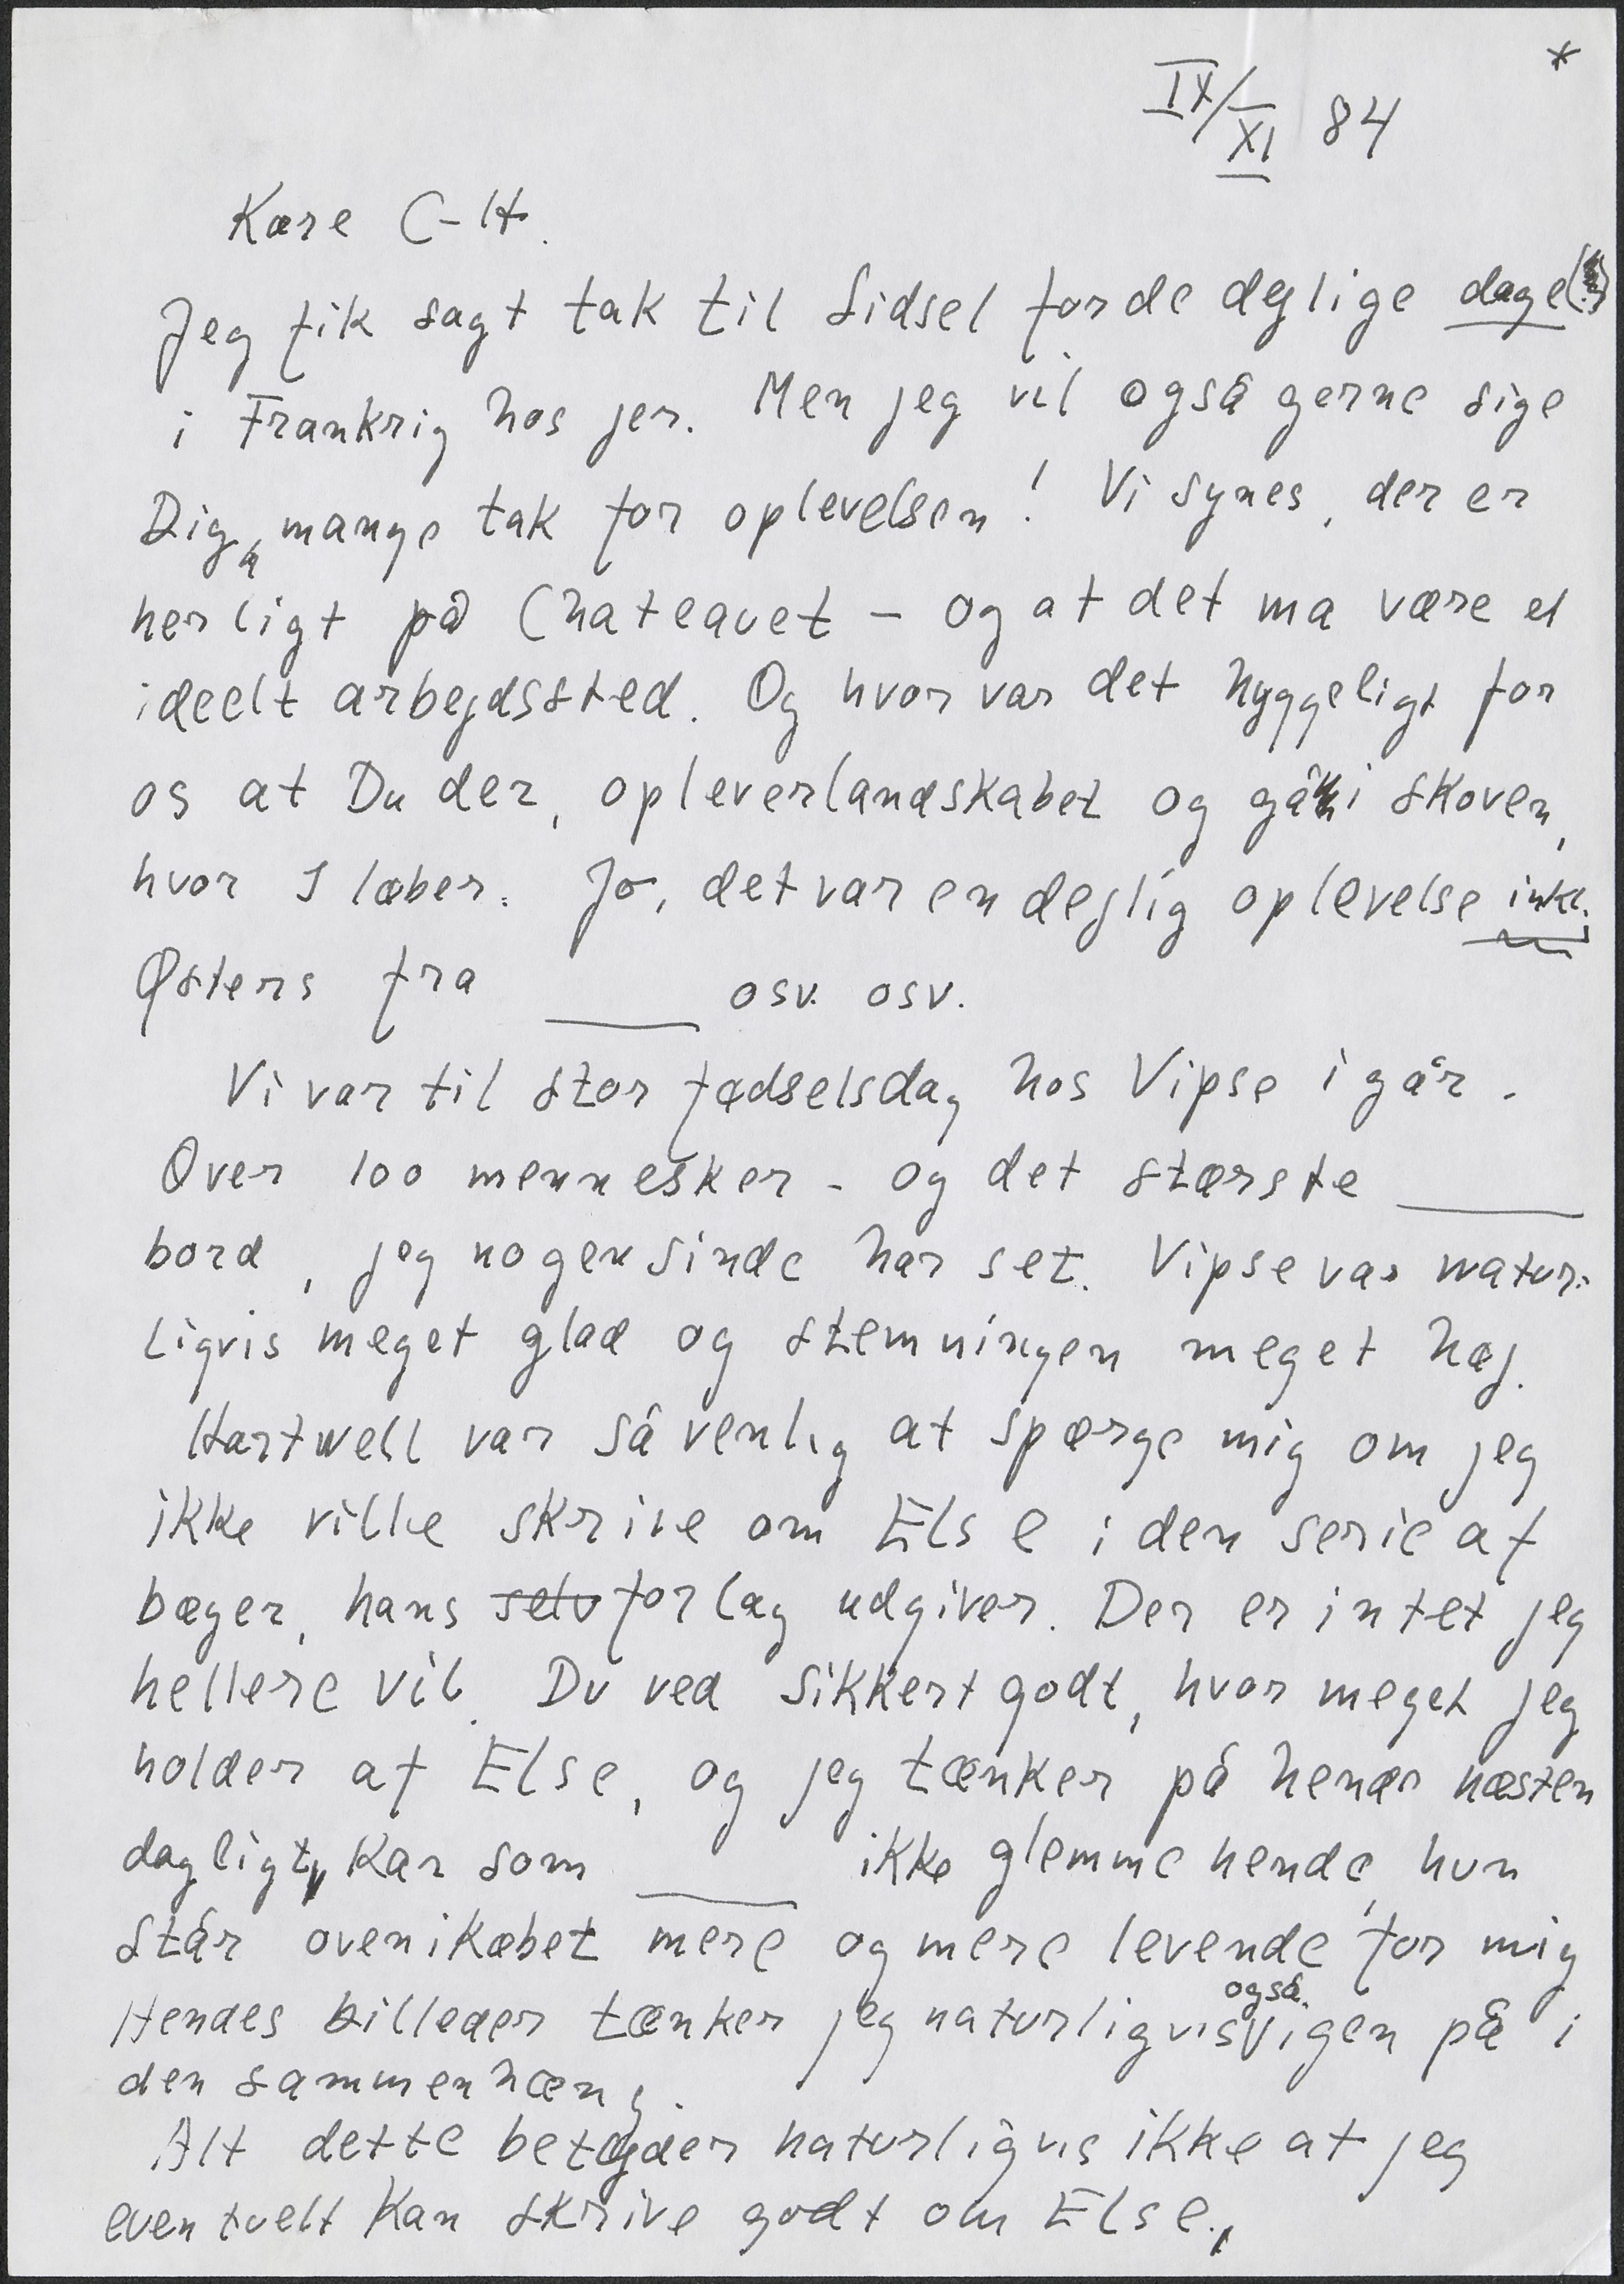 *
IX/XI 84
Kære C-H.
Jeg fik sagt tak til Sidsel for de dejlige dage
i Frankrig hos jer. Men jeg vil også gerne sige
Dig mange tak for oplevelsen! Vi synes, der er
herligt på Chateauet – og at det ma være et
ideelt arbejdssted. Og hvor var det hyggeligt for
os at Du der, opleverlandskabet og gå i skoven,
hvor I løber. Jo, det var en dejlig oplevelse inkl.
Østers fra ____ osv. osv.
Vi var til stor fødselsdag hos Vipse i går.
Over 100 mennesker - og det største ____
bord, jeg nogensinde har set. Vipse var natur-
ligvis meget glad og stemningen meget høj.
Hartwell var så venlig at spørge mig om jeg
ikke ville skrive om Else i den serie af
bøger, hans selv forlag udgiver. Der er intet jeg
hellere vil. Du ved sikkert godt, hvor meget jeg
holder af Else, og jeg tænker på hende næsten
dagligt, Kan som ____ ikke glemme hende, hun
står ovenikøbet mere og mere levende for mig
Hendes billeder tænker jeg naturligvis også igen på i
den sammenhæng.
Alt dette betyder naturligvis ikke at jeg
eventuelt kan skrive godt om Else.,